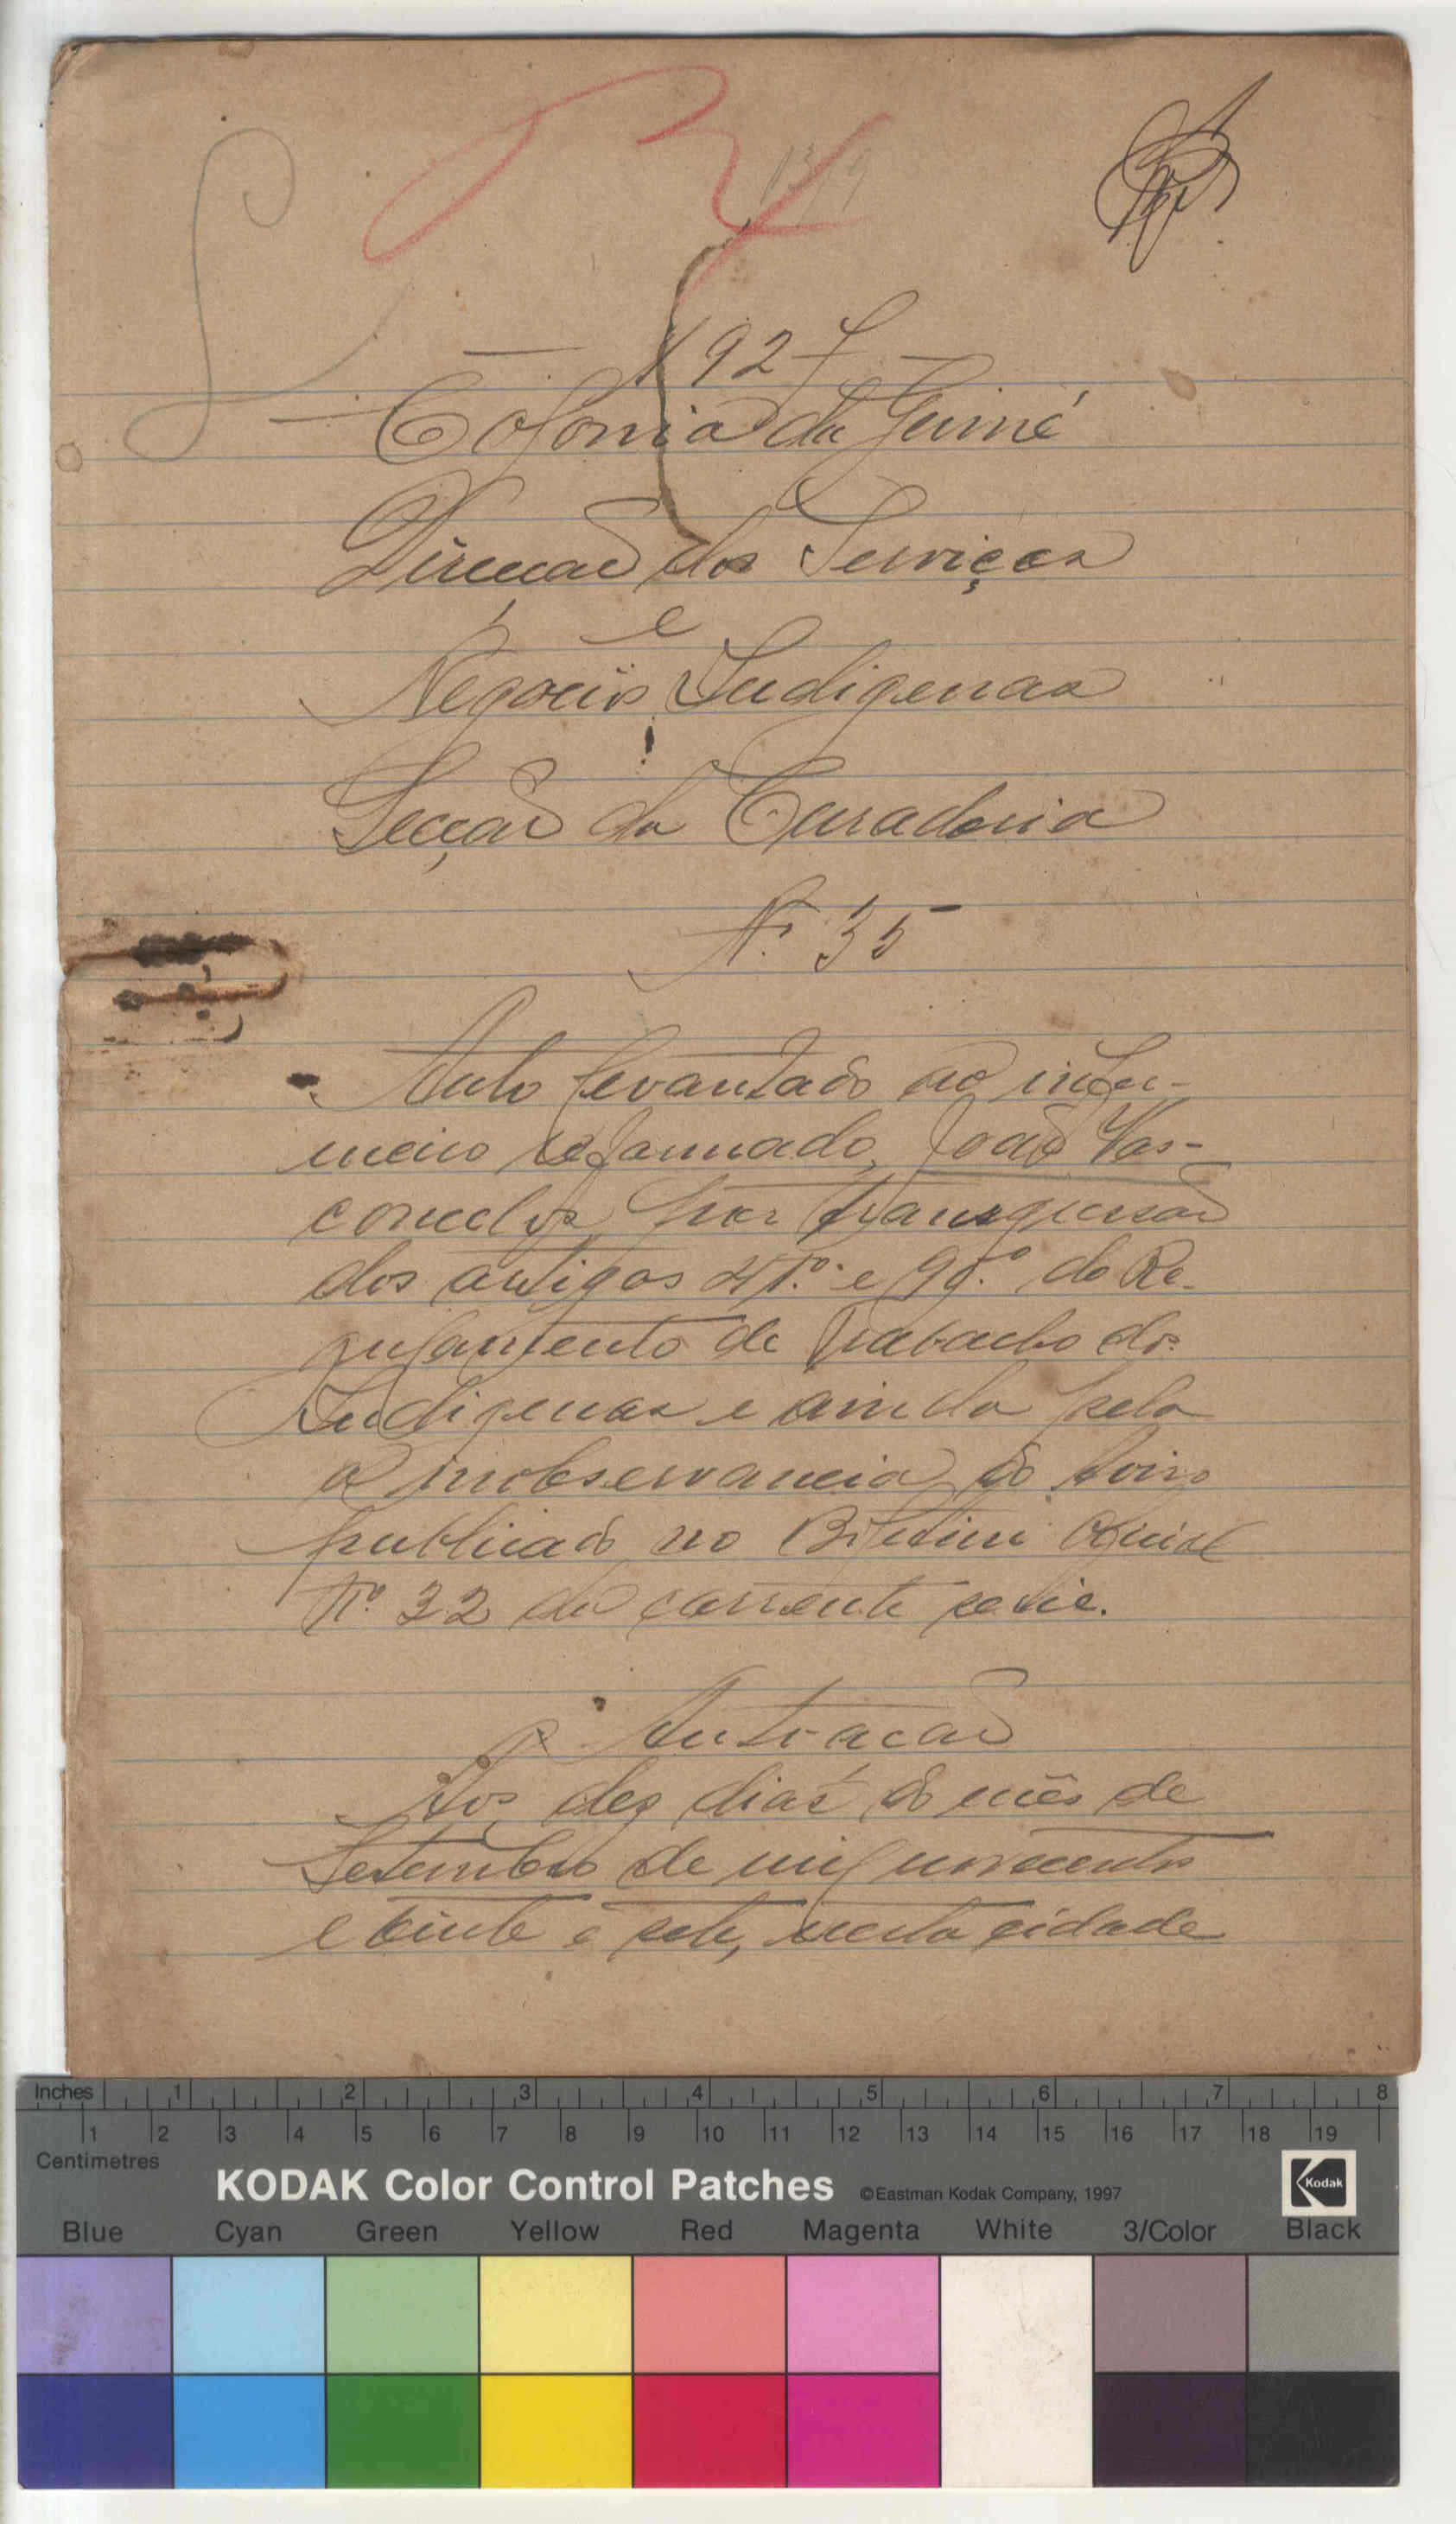 1927
Colonia da Guiné
Direcção dos Serviços
e
Negocios Indigenas
Secção da Curadoria
N.º 35
Auto levantado ao infer-
meiro reformado, João Vas-
concelos, por transgressão
dos artigos e do Re-
gulamento de Trabalho dos
Indigenas e ainda pela
a inobservancia do aviso
publicado no Boletim Oficial
Nº 32 da corrente serie.
Autuação
Aos dez dias do mês de
Setembro de mil novecentos
e vinte e sete, nesta cidade
Inches 1 2 3 4 5 6 7 8
1 2 3 4 5 6 7 8 9 10 11 12 13 14 15 16 17 18 19
Centimetres
KODAK Color Control Patches ©Eastman Kodak Company, 1997 Kodak
Blue Cyan Green Yellow Red Magenta White 3/Color Black